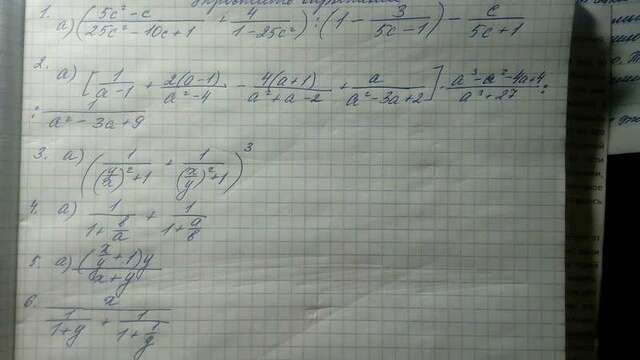 Упростить выражения
1. а) ((5c² - c)/(25c² - 10c + 1) + 4/(1 - 25c²)) : (1 - 3/(5c - 1)) - c/(5c + 1)
2. а) [1/(a - 1) + 2(a - 1)/(a² - 4) - 4(a + 1)/(a² + a - 2) + a/(a² - 3a + 2)] · (a³ - a² - 4a + 4)/(a³ + 27) :
: 1/(a² - 3a + 9)
3. а) (1/((y/x)² + 1) + 1/((x/y)² + 1))³
4. а) 1/(1 + b/a) + 1/(1 + a/b)
5. а) ((x/y + 1)y)/(x + y)
6. x/(1/(1 + y) + 1/(1 + 1/y))